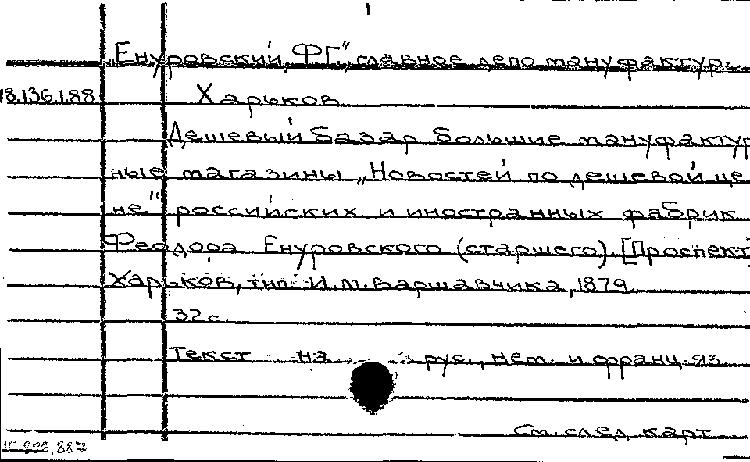 „Енуровский, ФГ", главное депо мануфактур.
18.136.1.88 Харьков
Дешевый базар Большие мануфактур
ные магазины „Новостей по дешевой це
не" российских и иностранных фабрик
Феодора Енуровского (старшего). [Проспект]
Харьков, тип. И.М. Варшавчика, 1879.
32 с.
Текст на рус., нем. и франц. яз.
См. след. карт.